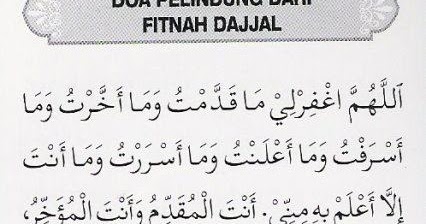 DOA PELINDUNG DARI
FITNAH DAJJAL
اَللَّهُمَّ اغْفِرْلِيْ مَا قَدَّمْتُ وَمَا أَخَّرْتُ وَمَا
أَسْرَفْتُ وَمَا أَعْلَنْتُ وَمَا أَسْرَرْتُ وَمَا أَنْتَ
إِلَّا أَعْلَمُ بِهِ مِنِّيْ. أَنْتَ الْمُقَدِّمُ وَأَنْتَ الْمُؤَخِّرُ،